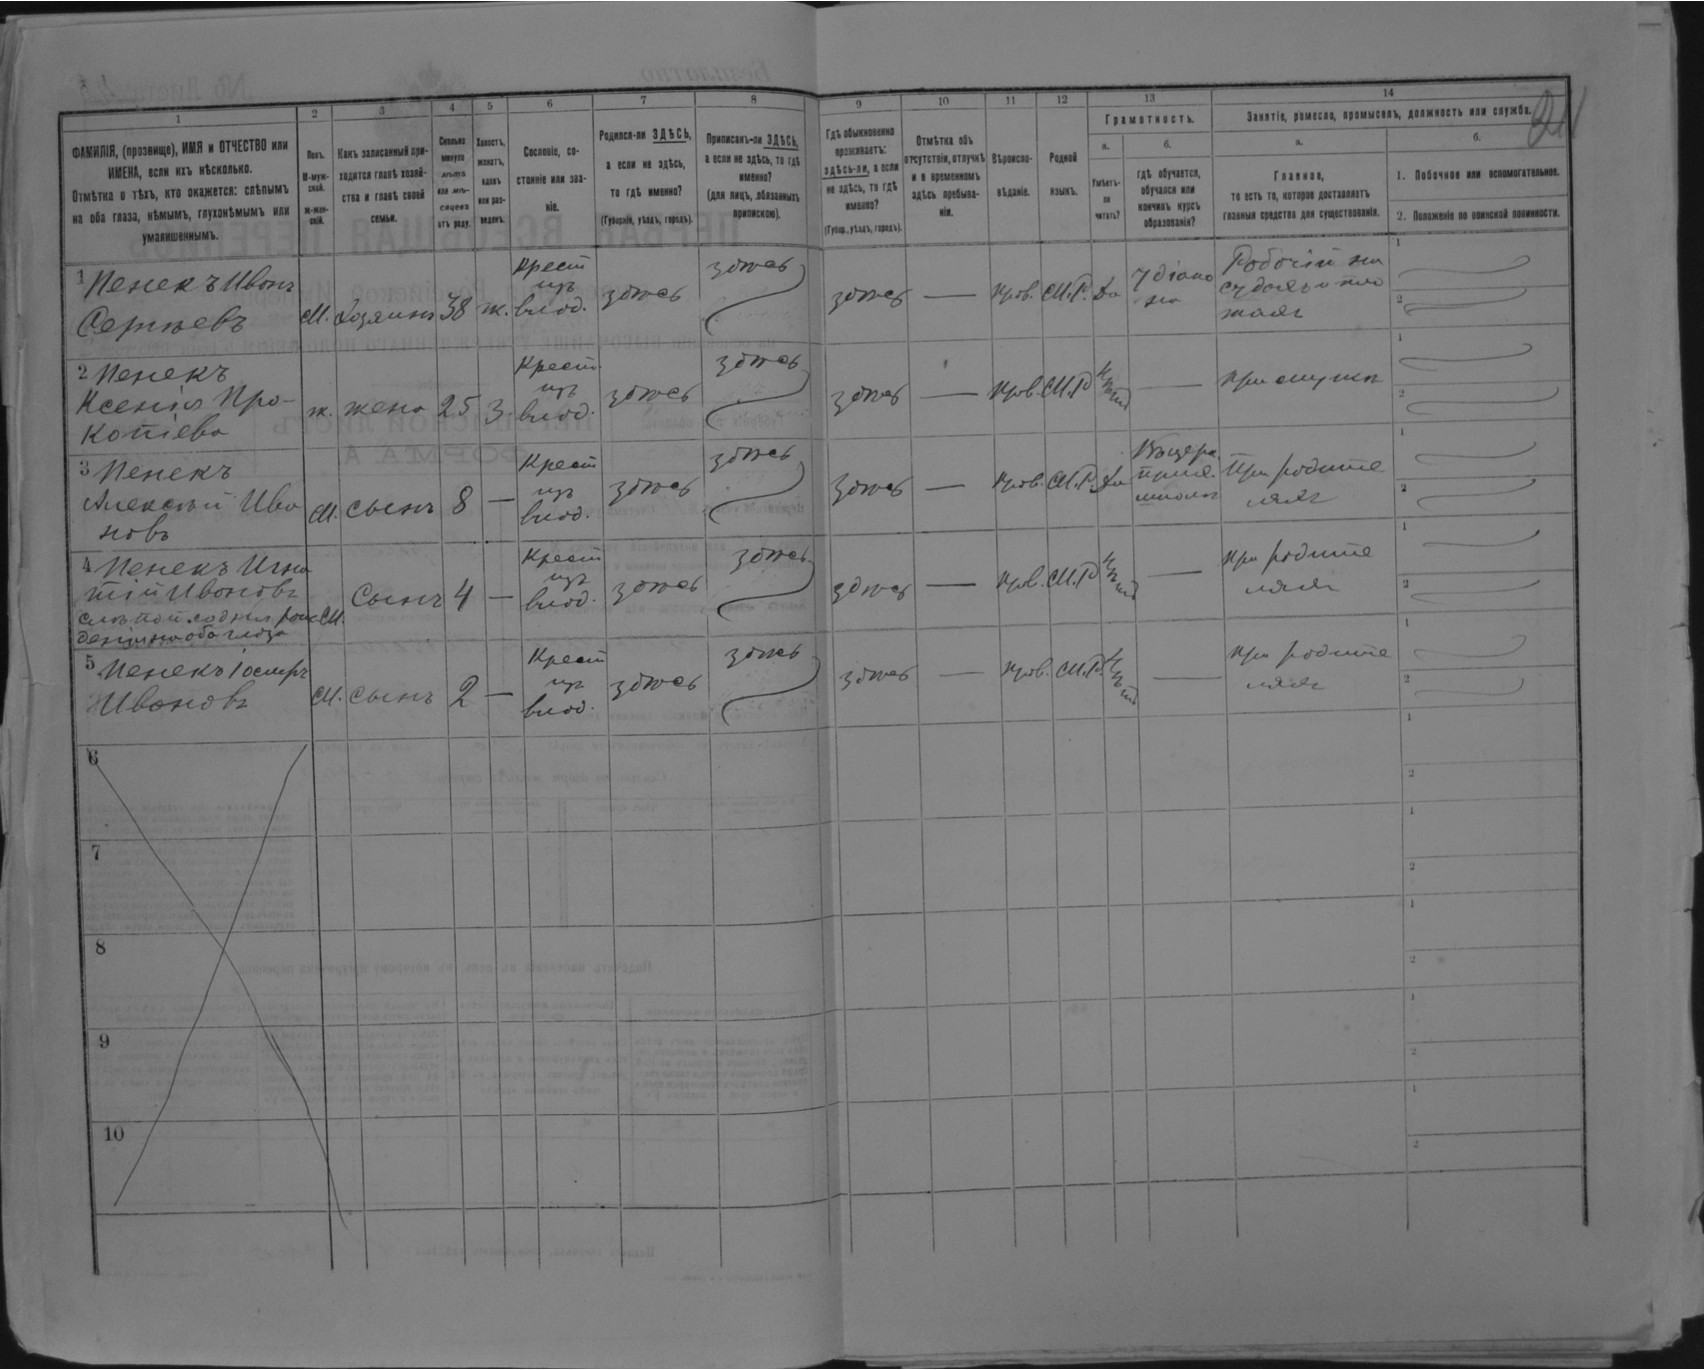 1
2
3
4
5
6
7
8
9
10
11
12
13
14
ФАМИЛІЯ, (прозвище), ИМЯ и ОТЧЕСТВО или
ИМЕНА, если ихъ нѣсколько.
Отмѣтка о тѣхъ, кто окажется: слѣпымъ
на оба глаза, нѣмымъ, глухонѣмымъ или
умалишеннымъ.
Полъ.
М-муж-
ской.
Ж-жен-
скій.
Какъ записанный при-
ходится главѣ хозяй-
ства и главѣ своей
семьи.
Сколько
минуло
лѣтъ
или мѣ-
сяцевъ
отъ роду.
Холостъ,
женатъ,
вдовъ
или раз-
веденъ.
Сословіе, со-
стояніе или зва-
ніе.
Родился-ли ЗДѢСЬ,
а если не здѣсь,
то гдѣ именно?
(Губернія, уѣздъ, городъ).
Приписанъ-ли ЗДѢСЬ,
а если не здѣсь, то гдѣ
именно?
(для лицъ, обязанныхъ
припискою).
Гдѣ обыкновенно
проживаетъ:
здѣсь-ли, а если
не здѣсь, то гдѣ
именно?
(Губер., уѣздъ, городъ).
Отмѣтка объ
отсутствіи, отлучкѣ
и о временномъ
здѣсь пребыва-
ніи.
Вѣроиспо-
вѣданіе.
Родной
языкъ.
Грамотность.
а.
Умѣетъ-
ли
читать?
б.
гдѣ обучается,
обучался или
кончилъ курсъ
образованія?
Занятіе, ремесло, промыселъ, должность или служба.
а.
Главное,
то есть то, которое доставляетъ
главныя средства для существованія.
б.
1. Побочное или вспомогательное.
2. Положеніе по воинской повинности.
1 Пенекъ Иванъ
Сергѣевъ
М. Хозяинъ 38 ж. Крест. изъ влад. здѣсь здѣсь здѣсь — прав. М.Р. да У діако
на
Рабочій на
1
2
2 Пенекъ
Ксенія Про-
копіева
ж. жена 25 з. Крест. изъ влад. здѣсь здѣсь здѣсь — прав. М.Р. — При
1
2
3 Пенекъ
Алексѣй Ива
новъ
М. сынъ 8 — Крест изъ влад. здѣсь здѣсь здѣсь — прав. М.Р. да Въ церк. прих. школѣ При родите
ляхъ
1
2
4 Пенекъ Игна
тій Ивановъ
слѣпой
на оба глаза
М. Сынъ 4 — Крест изъ влад. здѣсь здѣсь здѣсь — прав. М.Р. — при родите
ляхъ
1
2
5 Пенекъ
Ивановъ
М. сынъ 2 — Крест изъ влад. здѣсь здѣсь здѣсь — прав. М.Р. — при родите
ляхъ
1
2
6
1
2
7
1
2
8
1
2
9
1
2
10
1
2